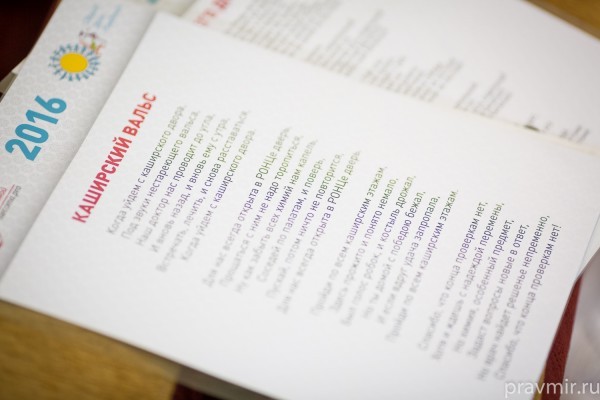 2016
КАШИРСКИЙ ВАЛЬС
Когда уйдем с каширского двора,
Под звуки нестареющего вальса,
Наш доктор нас проводит до угла,
И вновь назад, и вновь ему с утра,
Встречать, лечить, и снова расставаться,
Когда уйдем с каширского двора.
Для нас всегда открыта в РОНЦе дверь,
с ним не надо торопиться,
забыть всех химий нам капель,
по палатам, и поверь,
ничто не повторится,
Для нас всегда открыта в РОНЦе дверь.
Пройди по всем каширским этажам,
Здесь прожито и понято немало,
Был голос робок, и костыль дрожал,
Но ты домой с победою бежал,
И если вдруг удача запропала,
Пройди по всем каширским этажам.
Спасибо, что конца проверкам нет,
Хотя и ждешь с надеждой перемены,
Но химия, особенный предмет,
Задаст вопросы новые в ответ,
Но врач найдет решенье непременно,
Спасибо, что конца проверкам нет!
pravmir.ru